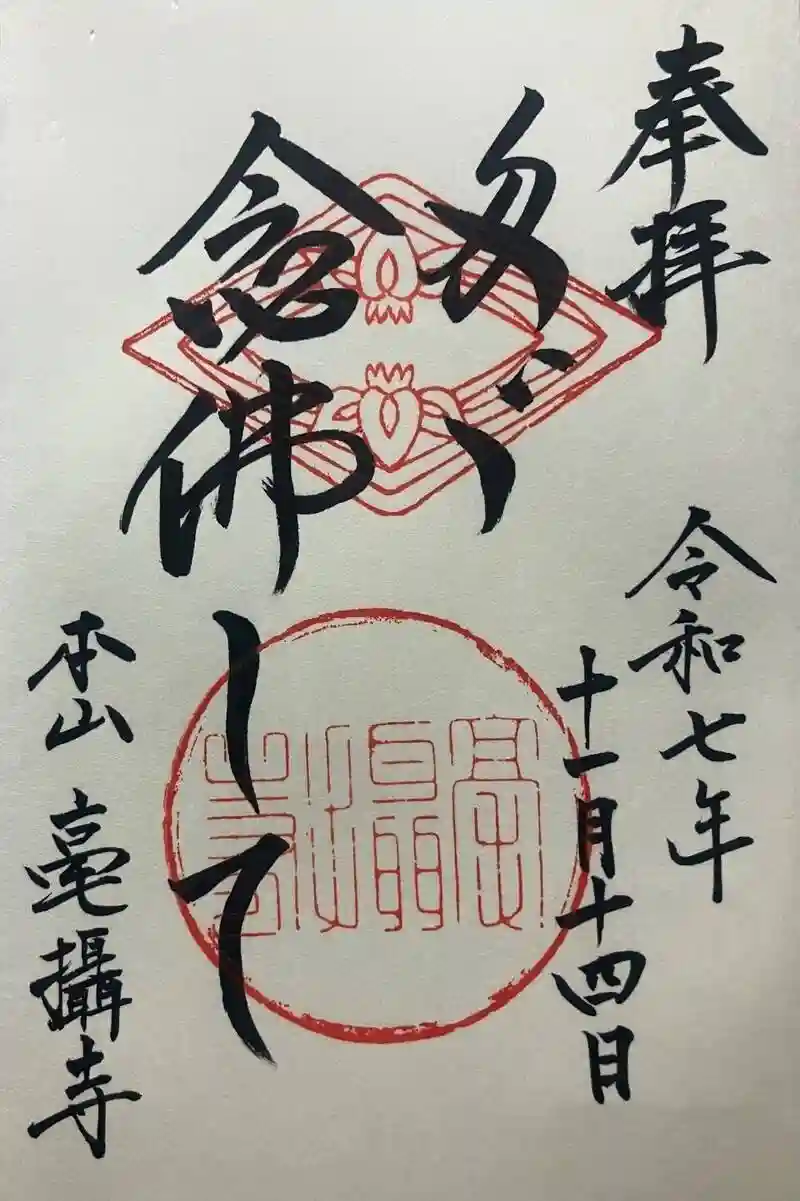 奉拝
令和七年
十一月十四日
多ゞ
念佛して
本山 毫攝寺
毫攝寺